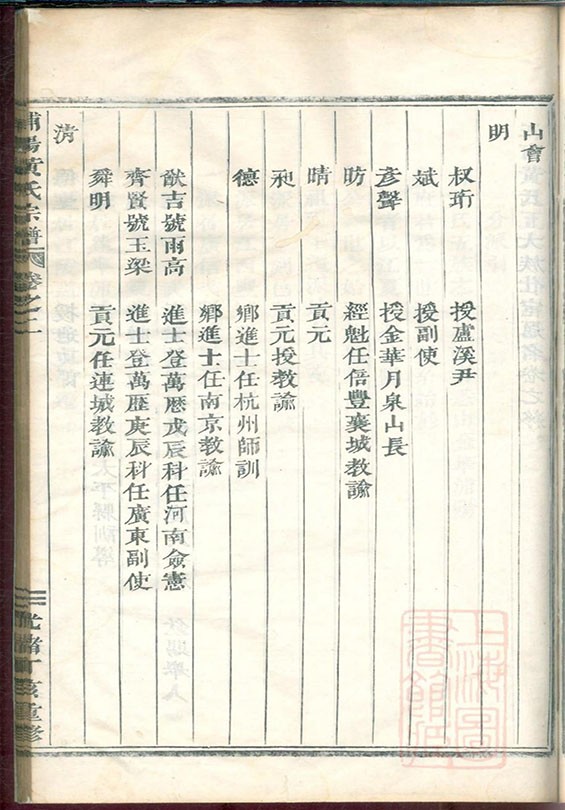 山會
明
叔珩 授盧溪尹
斌 授副使
彥聲 授金華月泉山長
昉 經魁任信豐襄城教諭
晴 貢元
昶 貢元授教諭
德 鄉進士任杭州師訓
鄉進士任南京教諭
猷吉號雨高 進士登萬曆戊辰科任河南僉憲
齊賢號玉梁 進士登萬歷庚辰科任廣東副使
舜明 貢元任連城教諭
清
浦陽黃氏宗譜 卷之二 重修
上海圖書館藏